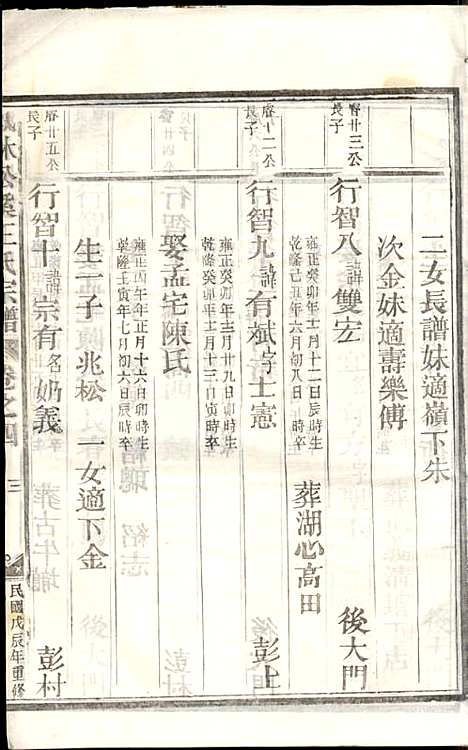 二女長譜妹適嶺下朱
次金妹適壽樂傅
睿廿三公長子
行智八諱雙宏 後大門
雍正癸卯年三月十二日辰時生
乾隆己丑年六月初八日 時卒
葬湖心高田
睿十二公長子
行智九諱有斌字士憲 彭上
雍正癸卯年三月廿九日卯時生
乾隆癸卯年十二月十三日寅時卒
娶孟宅陳氏
雍正四午年正月十六日卯時生
乾隆壬寅年七月初六日辰時卒
生一子 兆松 一女適下金
睿廿五公長子
行智十諱宗有名奶義 彭村
王氏宗譜 卷之四
三
民國戊辰年重修